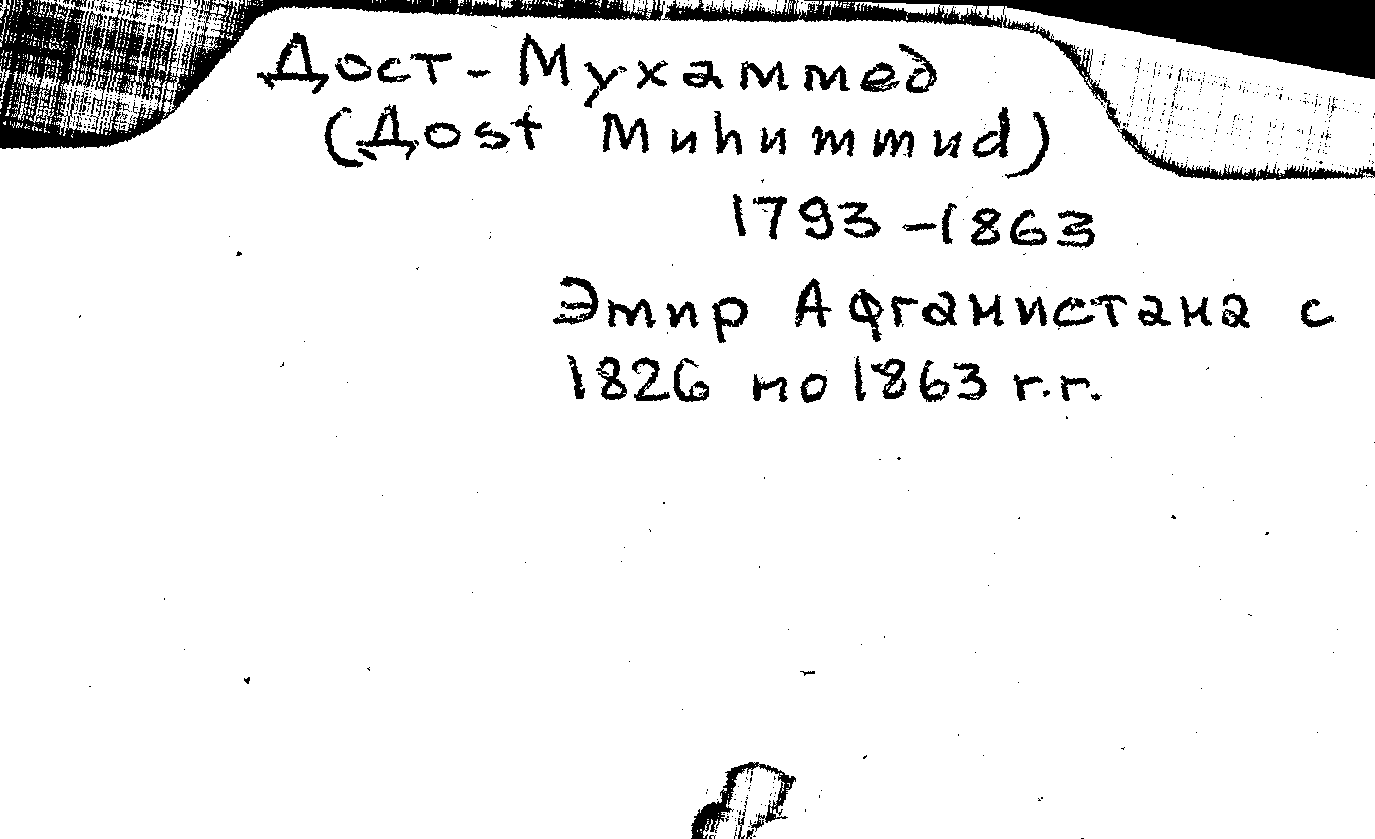 Дост-Мухаммед
(Дost Muhummud)
1793-1863
Эмир Афганистана с
1826 по 1863 г.г.